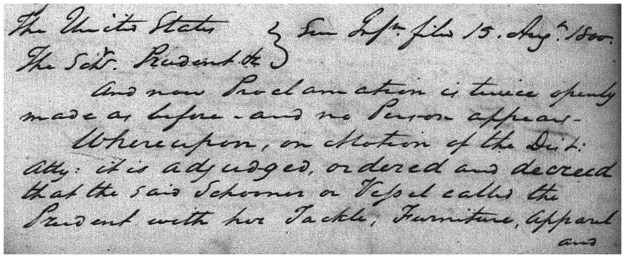 The United States } See Infn. filed 15. Augt. 1800.
The Schr. Prudent &c
And now Proclamation is twice openly
made as before - and no Person appears -
Whereupon, on Motion of the Dist:
Atty: it is adjudged, ordered and decreed
that the said Schooner or Vessel called the
Prudent with her Tackle, Furniture, Apparel
and